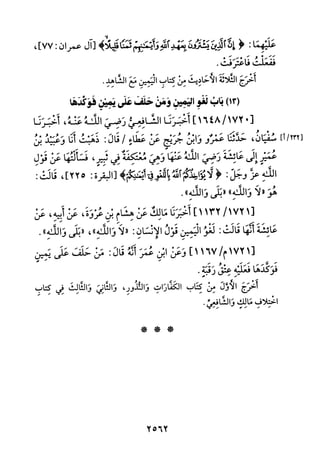 عَلَيْهِمَا: ﴿ إِنَّ ٱلَّذِينَ يَشْتَرُونَ بِعَهْدِ ٱللَّهِ وَأَيْمَٰنِهِمْ ثَمَنًا قَلِيلًا ﴾ [آل عمران: ٧٧]،
فَفَعَلْتُ فَاعْتَرَفَتْ.
أَخرَجَ الثَّلاثَةَ الأَحَادِيثَ مِنْ كِتَابِ الْيَمِينِ مَعَ الشَّاهِدِ.
(١٣) بَابُ لَغْوِ اليَمِينِ وَمَنْ حَلَفَ عَلَى يَمِيْنٍ فَوَكَّدَهَا
[١٧٢٠/ ١٦٤٨] أَخْبَرَنَا الشَّافِعِيُّ رَضِيَ اللَّهُ عَنْهُ، أَخْبَرَنَا
[١٣٢/ أ] سُفْيَانُ، حَدَّثَنَا عَمْرٌو وَابْنُ جُرَيْجٍ عَنْ عَطَاءٍ/ قَالَ: ذَهَبْتُ أَنَا وَعُبَيْدُ بْنُ
عُمَيْرٍ إِلَى عَائِشَةَ رَضِيَ اللَّهُ عَنْهَا وَهِيَ مُعْتَكِفَةٌ فِي ثَبِيرٍ، فَسَأَلْتُهَا عَنْ قَوْلِ
اللَّهِ عزَّ وجَلَّ: ﴿ لَا يُؤَاخِذُكُمُ ٱللَّهُ بِٱللَّغْوِ فِىٓ أَيْمَٰنِكُمْ ﴾ [البقرة: ٢٢٥]، قَالَتْ:
هُوَ «لَا وَاللَّهِ» «بَلَى وَاللَّهِ».
[١٧٢١/ ١١٣٢] أَخْبَرَنَا مَالِكٌ عَنْ هِشَامِ بْنِ عُرْوَةَ، عَنْ أَبِيهِ، عَنْ
عَائِشَةَ أَنَّهَا قَالَتْ: لَغْوُ الْيَمِينِ قَوْلُ الإِنْسَانِ: «لَا وَاللَّهِ»، «بَلَى وَاللَّهِ».
[١٧٢١م/ ١١٦٧] وَعَنِ ابْنِ عُمَرَ أَنَّهُ قَالَ: مَنْ حَلَفَ عَلَى يَمِينٍ
فَوَكَّدَهَا فَعَلَيْهِ عِتْقُ رَقَبَةٍ.
أَخْرَجَ الأَوَّلَ مِنْ كِتَابِ الكَفَّارَاتِ وَالنُّذُورِ، وَالثَّانِيَ وَالثَّالِثَ فِي كِتَابِ
اخْتِلافِ مَالِكٍ وَالشَّافِعِيِّ.
* * *
٢٥٦٢